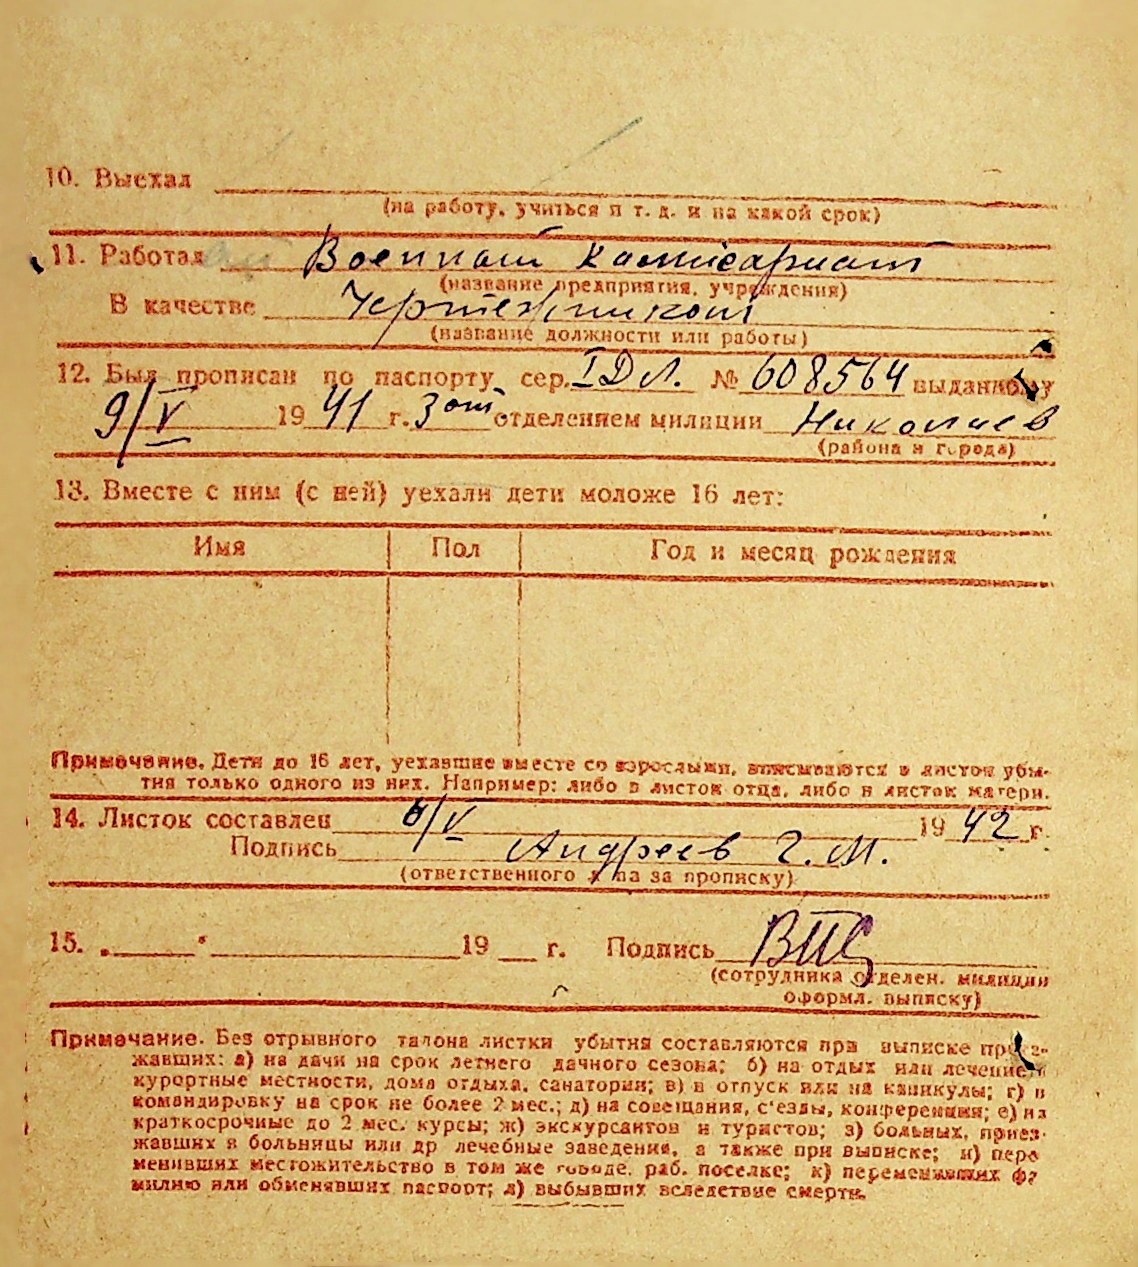 10. Выехал
(на работу, учиться и т. д. и на какой срок)
11. Работал Военный Комиссариат
(название предприятия, учреждения)
В качестве Чертежником
(название должности или работы)
12. Был прописан по паспорту сер. I ДЛ. № 608564 выданному
9/V 1941 г. 3 отделением милиции Николаев
(района и города)
13. Вместе с ним (с ней) уехали дети моложе 16 лет:
Имя Пол Год и месяц рождения
Примечание. Дети до 16 лет, уехавшие вместе со взрослыми, вписываются в листок убы-
тия только одного из них. Например: либо в листок отца, либо в листок матери.
14. Листок составлен 6/V 1942 г.
Подпись Андреев Г. М.
(ответственного лица за прописку)
15. „ " 19 г. Подпись
(сотрудника отделен. милиции
оформл. выписку)
Примечание. Без отрывного талона листки убытия составляются при выписке приез-
жавших: а) на дачи на срок летнего дачного сезона; б) на отдых или лечение в
курортные местности, дома отдыха, санатории; в) в отпуск или на каникулы; г) в
командировку на срок не более 2 мес.; д) на совещания, с'езды, конференции; е) на
краткосрочные до 2 мес. курсы; ж) экскурсантов и туристов; з) больных, приез-
жавших в больницы или др лечебные заведения, а также при выписке; и) пере
менивших местожительство в том же городе, раб. поселке; к) переменивших фа
милию или обменявших паспорт; л) выбывших вследствие смерти.